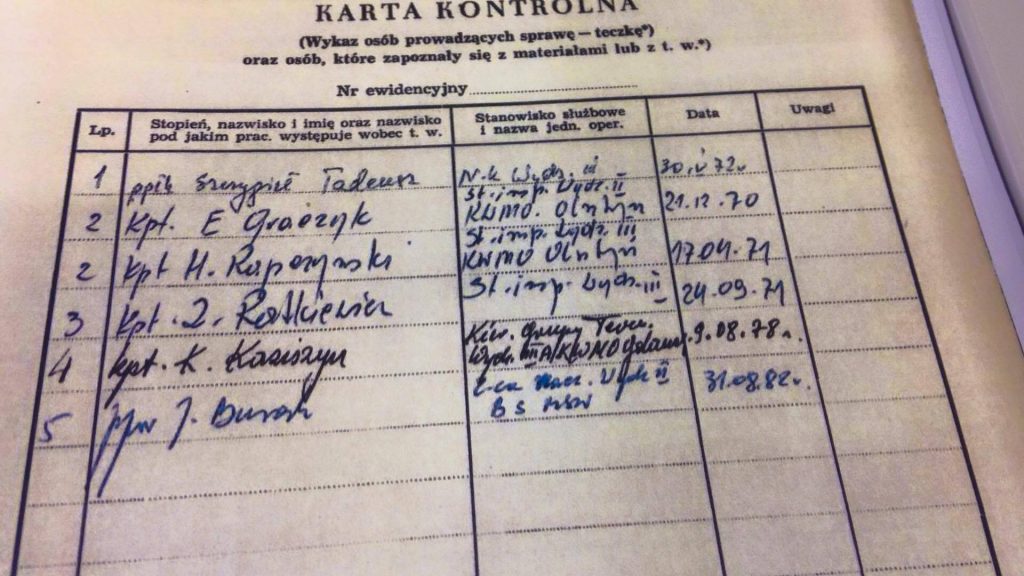 KARTA KONTROLNA
(Wykaz osób prowadzących sprawę — teczkę*)
oraz osób, które zapoznały się z materiałami lub z t. w.*)
Nr ewidencyjny
Lp.
Stopień, nazwisko i imię oraz nazwisko
pod jakim prac. występuje wobec t. w.
Stanowisko służbowe
i nazwa jedn. oper.
Data
Uwagi
1 ppłk Tadeusz Wydz. III 72r
2 Kpt. E Graczyk St. insp. Wydz. II
KWMO. Olsztyn 21.12.70
2 Kpt H. St. insp. Wydz. III
KWMO Olsztyn 17.04.71
3 Kpt. Z. Ratkiewicz St. insp. Wydz. III 24.09.71
4 kpt. K. Kier. Grupy
Wydz. III A KWMO 9.08.78r.
5 J. Burak Z-ca Nacz. Wydz II
BS MSW 31.08.82r.